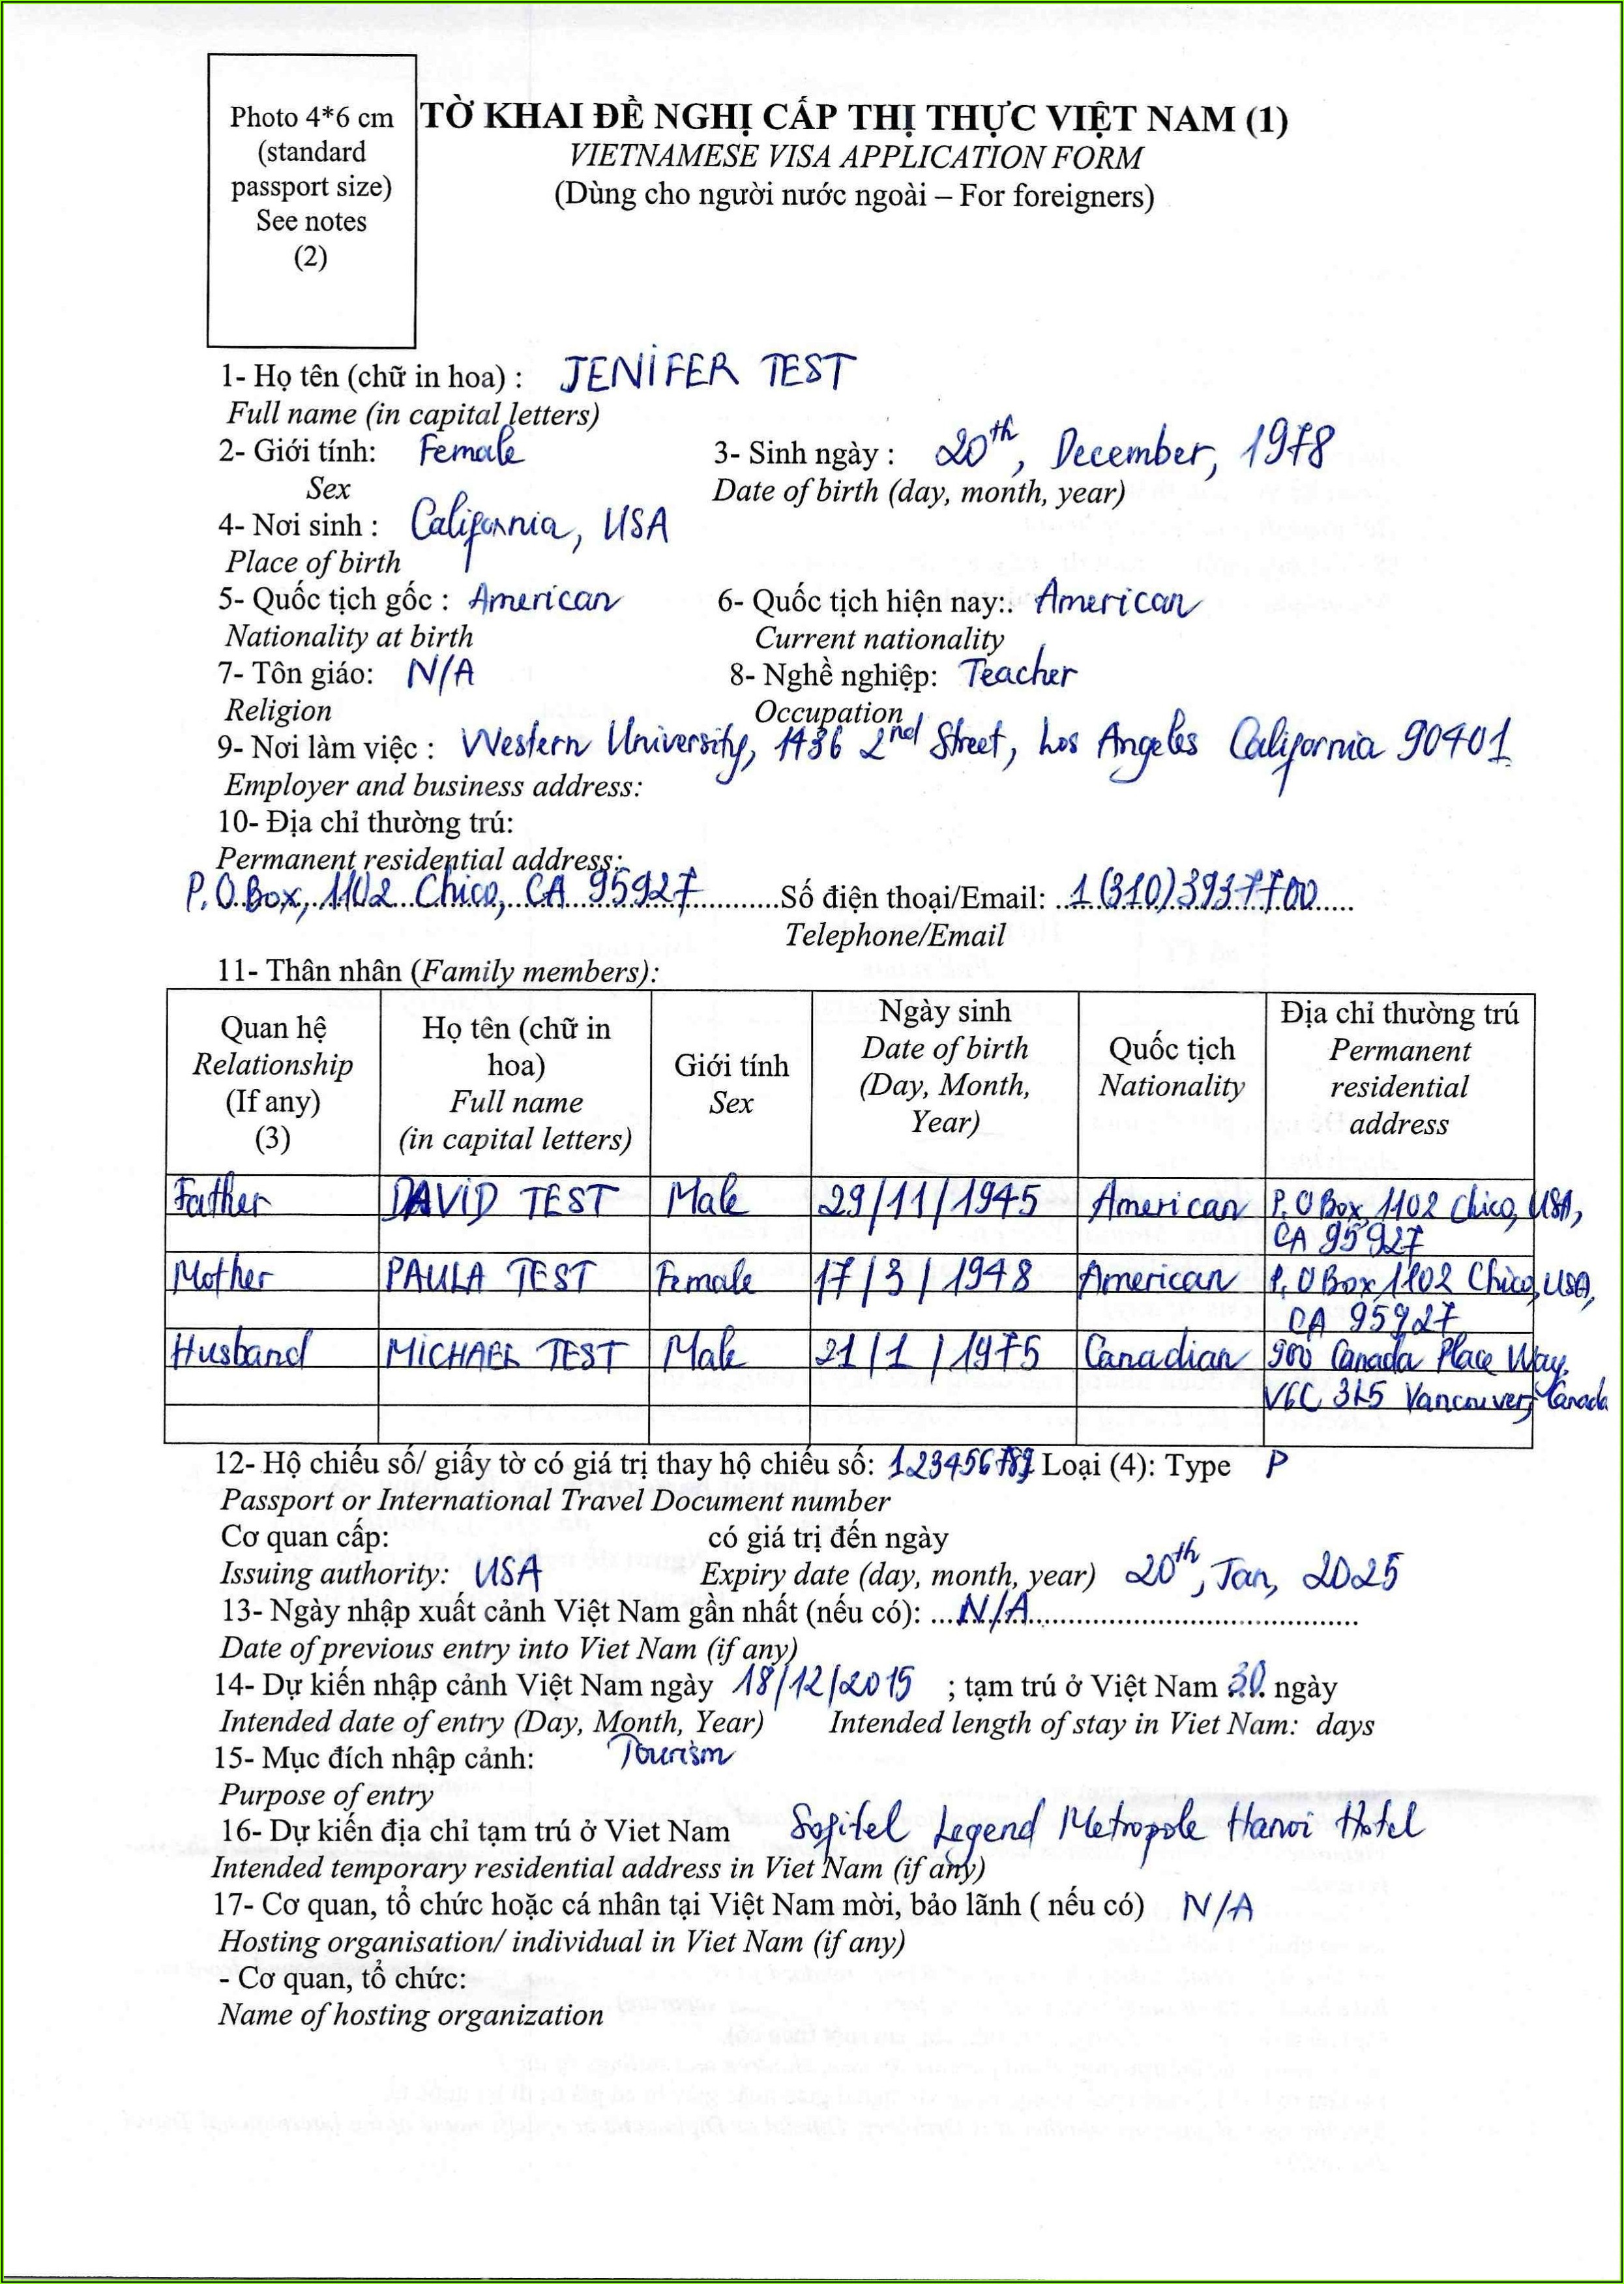 Photo 4*6 cm
(standard
passport size)
See notes
(2)
TỜ KHAI ĐỀ NGHỊ CẤP THỊ THỰC VIỆT NAM (1)
VIETNAMESE VISA APPLICATION FORM
(Dùng cho người nước ngoài – For foreigners)
1- Họ tên (chữ in hoa) : JENIFER TEST
Full name (in capital letters)
2- Giới tính: Female 3- Sinh ngày : 20th, December, 1978
Sex Date of birth (day, month, year)
4- Nơi sinh : California, USA
Place of birth
5- Quốc tịch gốc : American 6- Quốc tịch hiện nay:: American
Nationality at birth Current nationality
7- Tôn giáo: N/A 8- Nghề nghiệp: Teacher
Religion Occupation
9- Nơi làm việc : Western University, 1436 2nd Street, Los Angeles California 90401
Employer and business address:
10- Địa chỉ thường trú:
Permanent residential address:
P.O.Box, 1102 Chico, CA 95927 Số điện thoại/Email: 1(310)3937700
Telephone/Email
11- Thân nhân (Family members):
Quan hệ
Relationship
(If any)
(3)
Họ tên (chữ in
hoa)
Full name
(in capital letters)
Giới tính
Sex
Ngày sinh
Date of birth
(Day, Month,
Year)
Quốc tịch
Nationality
Địa chỉ thường trú
Permanent
residential
address
Father DAVID TEST Male 29/11/1945 American P.O Box 1102 Chico, USA,
CA 95927
Mother PAULA TEST Female 17/3/1948 American P.O Box 1102 Chico, USA,
CA 95927
Husband MICHAEL TEST Male 21/1/1975 Canadian 900 Canada Place Way,
V6C 3L5 Vancouver, Canada
12- Hộ chiếu số/ giấy tờ có giá trị thay hộ chiếu số: 123456789 Loại (4): Type P
Passport or International Travel Document number
Cơ quan cấp: có giá trị đến ngày
Issuing authority: USA Expiry date (day, month, year) 20th, Jan, 2025
13- Ngày nhập xuất cảnh Việt Nam gần nhất (nếu có): ...N/A...
Date of previous entry into Viet Nam (if any)
14- Dự kiến nhập cảnh Việt Nam ngày 18/12/2015 ; tạm trú ở Việt Nam 30 ngày
Intended date of entry (Day, Month, Year) Intended length of stay in Viet Nam: days
15- Mục đích nhập cảnh: Tourism
Purpose of entry
16- Dự kiến địa chỉ tạm trú ở Viet Nam Sofitel Legend Metropole Hanoi Hotel
Intended temporary residential address in Viet Nam (if any)
17- Cơ quan, tổ chức hoặc cá nhân tại Việt Nam mời, bảo lãnh ( nếu có) N/A
Hosting organisation/ individual in Viet Nam (if any)
- Cơ quan, tổ chức:
Name of hosting organization